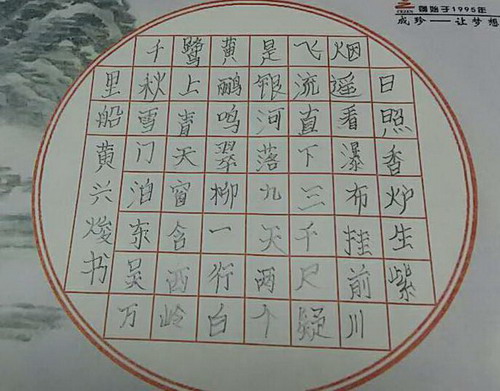 始于1995年
成珍——让梦想
日照香炉生紫
烟遥看瀑布挂前川
飞流直下三千尺疑
是银河落九天两个
黄鹂鸣翠柳一行白
鹭上青天窗含西岭
千秋雪门泊东吴万
里船黄兴焌书